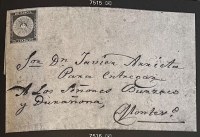 7515
Sor Dn Javier Arrieta
Para entregar
A Los Señores Burzaco
y Durañona,
Montevo
7516